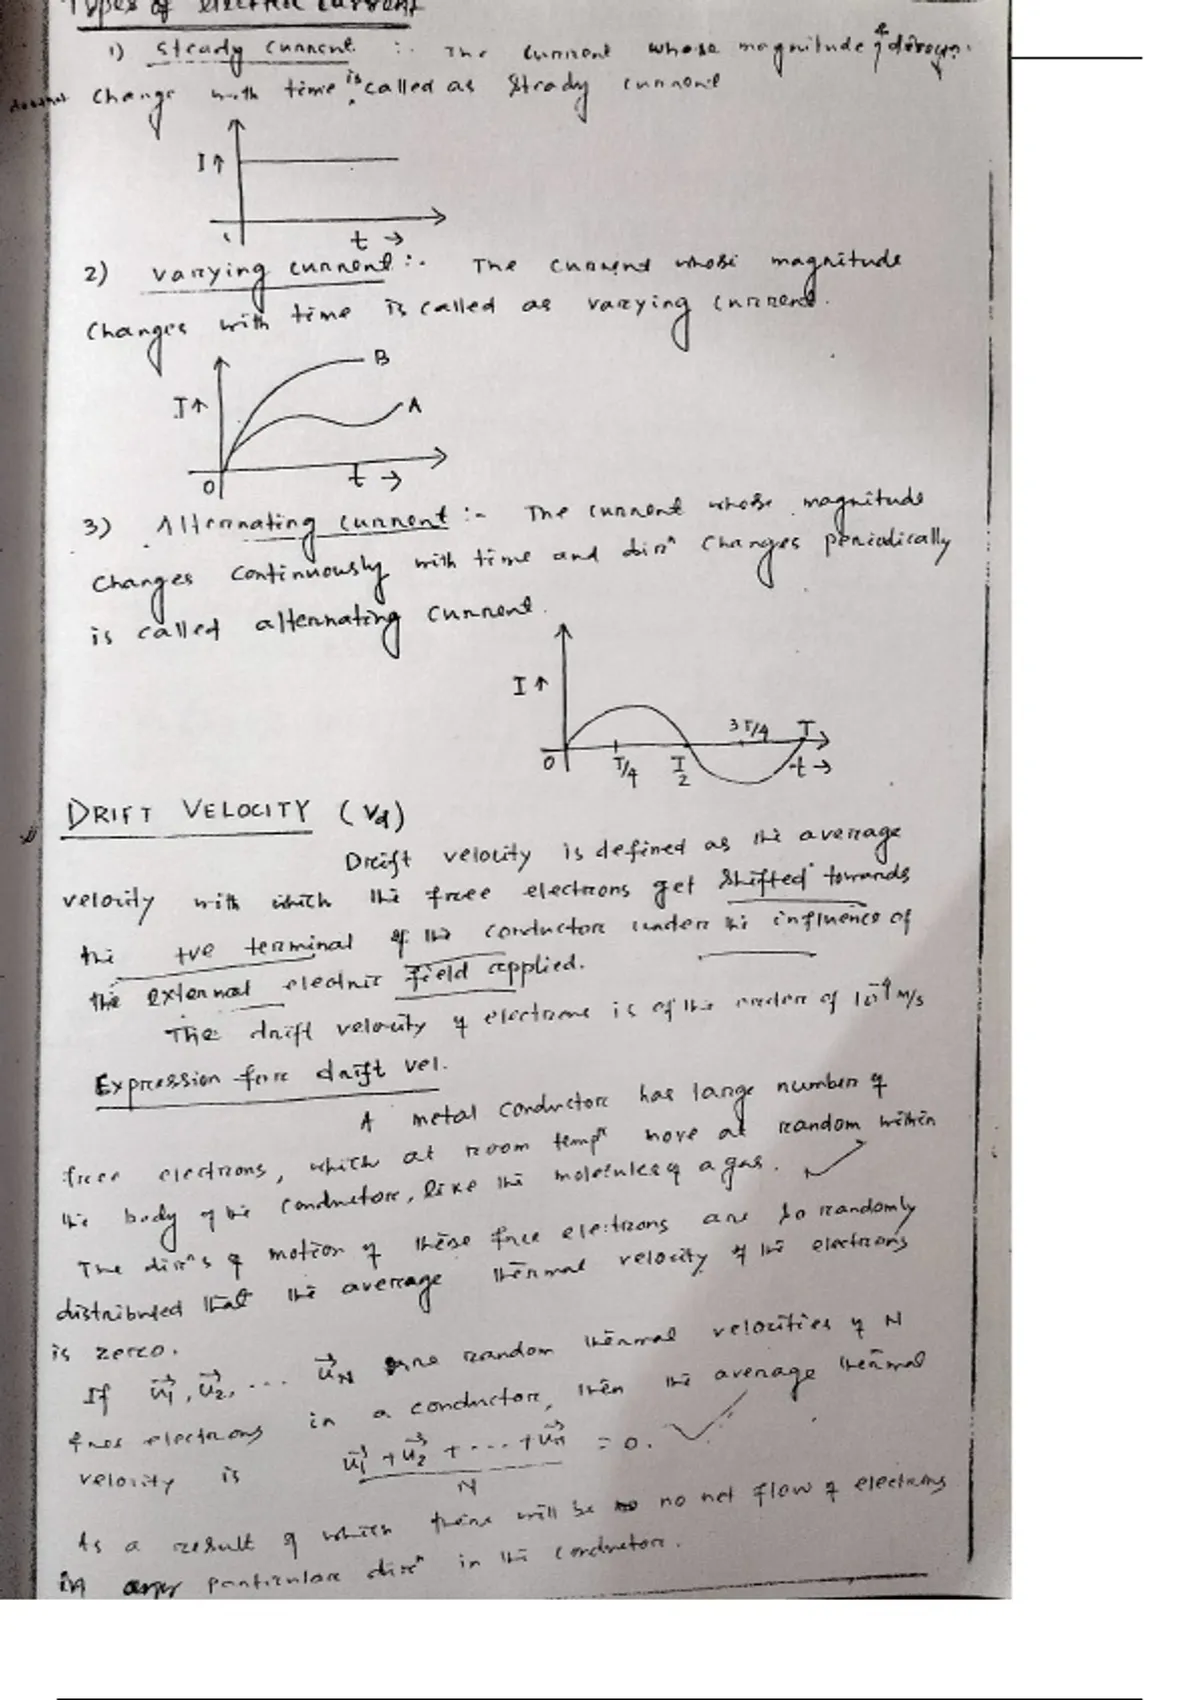 Types of electric current
1) Steady current :- The current whose magnitude & dirocyn.
doesnot change with time is called as Steady current
I↑
t →
2) varying current :- The current whose magnitude
Changes with time is called as varying current.
B
I↑
A
O
t →
3) Alternating current :- The current whose magnitude
Changes continuously with time and dirⁿ changes periodically
is called alternating current.
I↑
3T/4
T
O
T/4
T/2
t →
DRIFT VELOCITY (Vd)
Drift velocity is defined as the average
velocity with which the free electrons get shifted towards
the +ve terminal of the conductor under the influence of
the external electric field applied.
The drift velocity of electrons is of the order of 10⁻⁴ m/s
Expression for drift vel.
A metal conductor has large number of
free electrons, which at room tempʳ move at random within
the body of the conductor, like the molecules of a gas.
The dirⁿs of motion of these free electrons are so randomly
distributed that the average thermal velocity of the electrons
is zero.
If u₁⃗, u₂⃗, ... u_N⃗ are random thermal velocities of N
free electrons in a conductor, then the average thermal
velocity is (u₁⃗ + u₂⃗ + ... + u_N⃗)/N = 0.
As a result of which there will be no net flow of electrons
in any particular dirⁿ in the conductor.